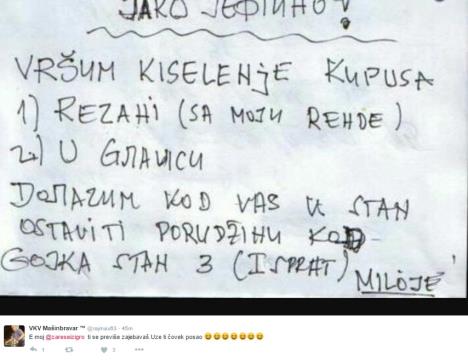 JAKO JEФTIHO!
VRŠUM KISELEHJE KUPUSA
1) REZAHI (SA MOJU REHDE)
2) U GЛAVICU
DOЛAZUM KOD VAS U STAN
OSTAVITI PORUDŽIHU KOD
GOJKA STAN 3 (ISPRAT)
MILOJE
VKV Mašinbravar ™ @rajmau83 · 45m
E moj @zareseizigro ti se previše zajebavaš.Uze ti čovek posao 😄😄😄😄😄😄😄